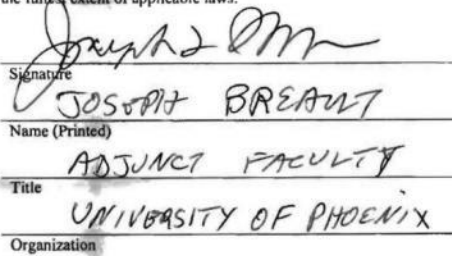 the fullest extent of applicable laws.
Signature
JOSEPH BREAULT
Name (Printed)
ADJUNCT FACULTY
Title
UNIVERSITY OF PHOENIX
Organization